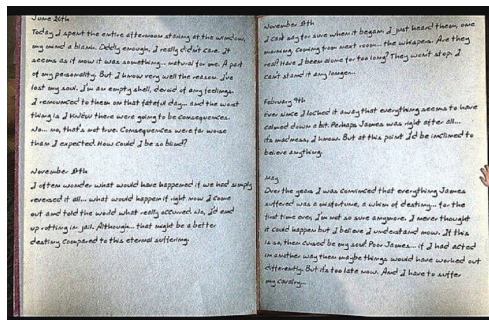 June 20th
Today I spent the entire afternoon staring at the window,
my mind a blank. Oddly enough, I really didn't care. It
seems as if now it was something... natural for me. A part
of my personality. But I know very well the reason. I've
lost my soul. I'm an empty shell, devoid of any feelings.
I renounced to them on that fateful day... and the worst
thing is I KNEW there were going to be consequences.
No... no, that's not true. Consequences were far worse
than I expected. How could I be so blind?
November 19th
I often wonder what would have happened if we had simply
reversed it all... what would happen if right now I come
out and told the world what really occurred. No, I'd end
up rotting in jail. Although... that might be a better
destiny compared to this eternal suffering.
November
I can't say for sure when it began. I just heard them, one
morning. Coming from next room... the whispers. Are they
real? Have I been alone for too long? They won't stop. I
can't stand it any longer...
February 9th
Ever since I locked it away that everything seems to have
calmed down a bit. Perhaps James was right after all...
its madness, I know. But at this point I'd be inclined to
believe anything.
May
Over the years I was convinced that everything James
suffered was a misfortune, a whim of destiny... for the
first time ever, I'm not so sure anymore. I never thought
it could happen but I believe I understand now. If this
is so, then cursed be my soul! Poor James... if I had acted
in another way then maybe things would have worked out
differently. But its too late now. And I have to suffer
my